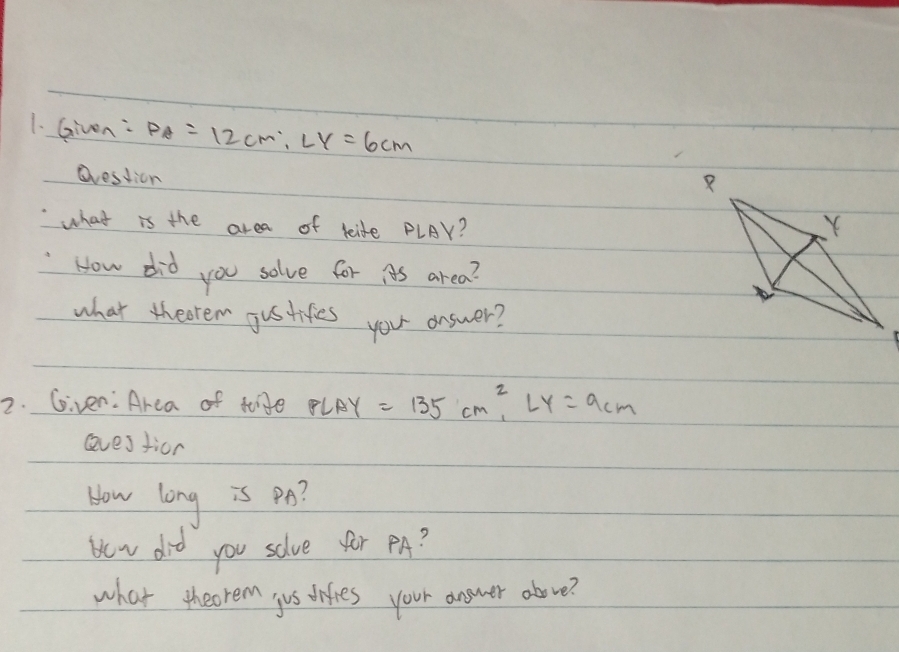 1. Given: PA = 12cm; LY = 6cm
Question
• what is the area of kite PLAY?
• How did you solve for its area?
what theorem justifies your answer?
P
Y
2. Given: Area of kite PLAY = 135 cm², LY = 9cm
Question
How long is PA?
How did you solve for PA?
what theorem justifies your answer above?